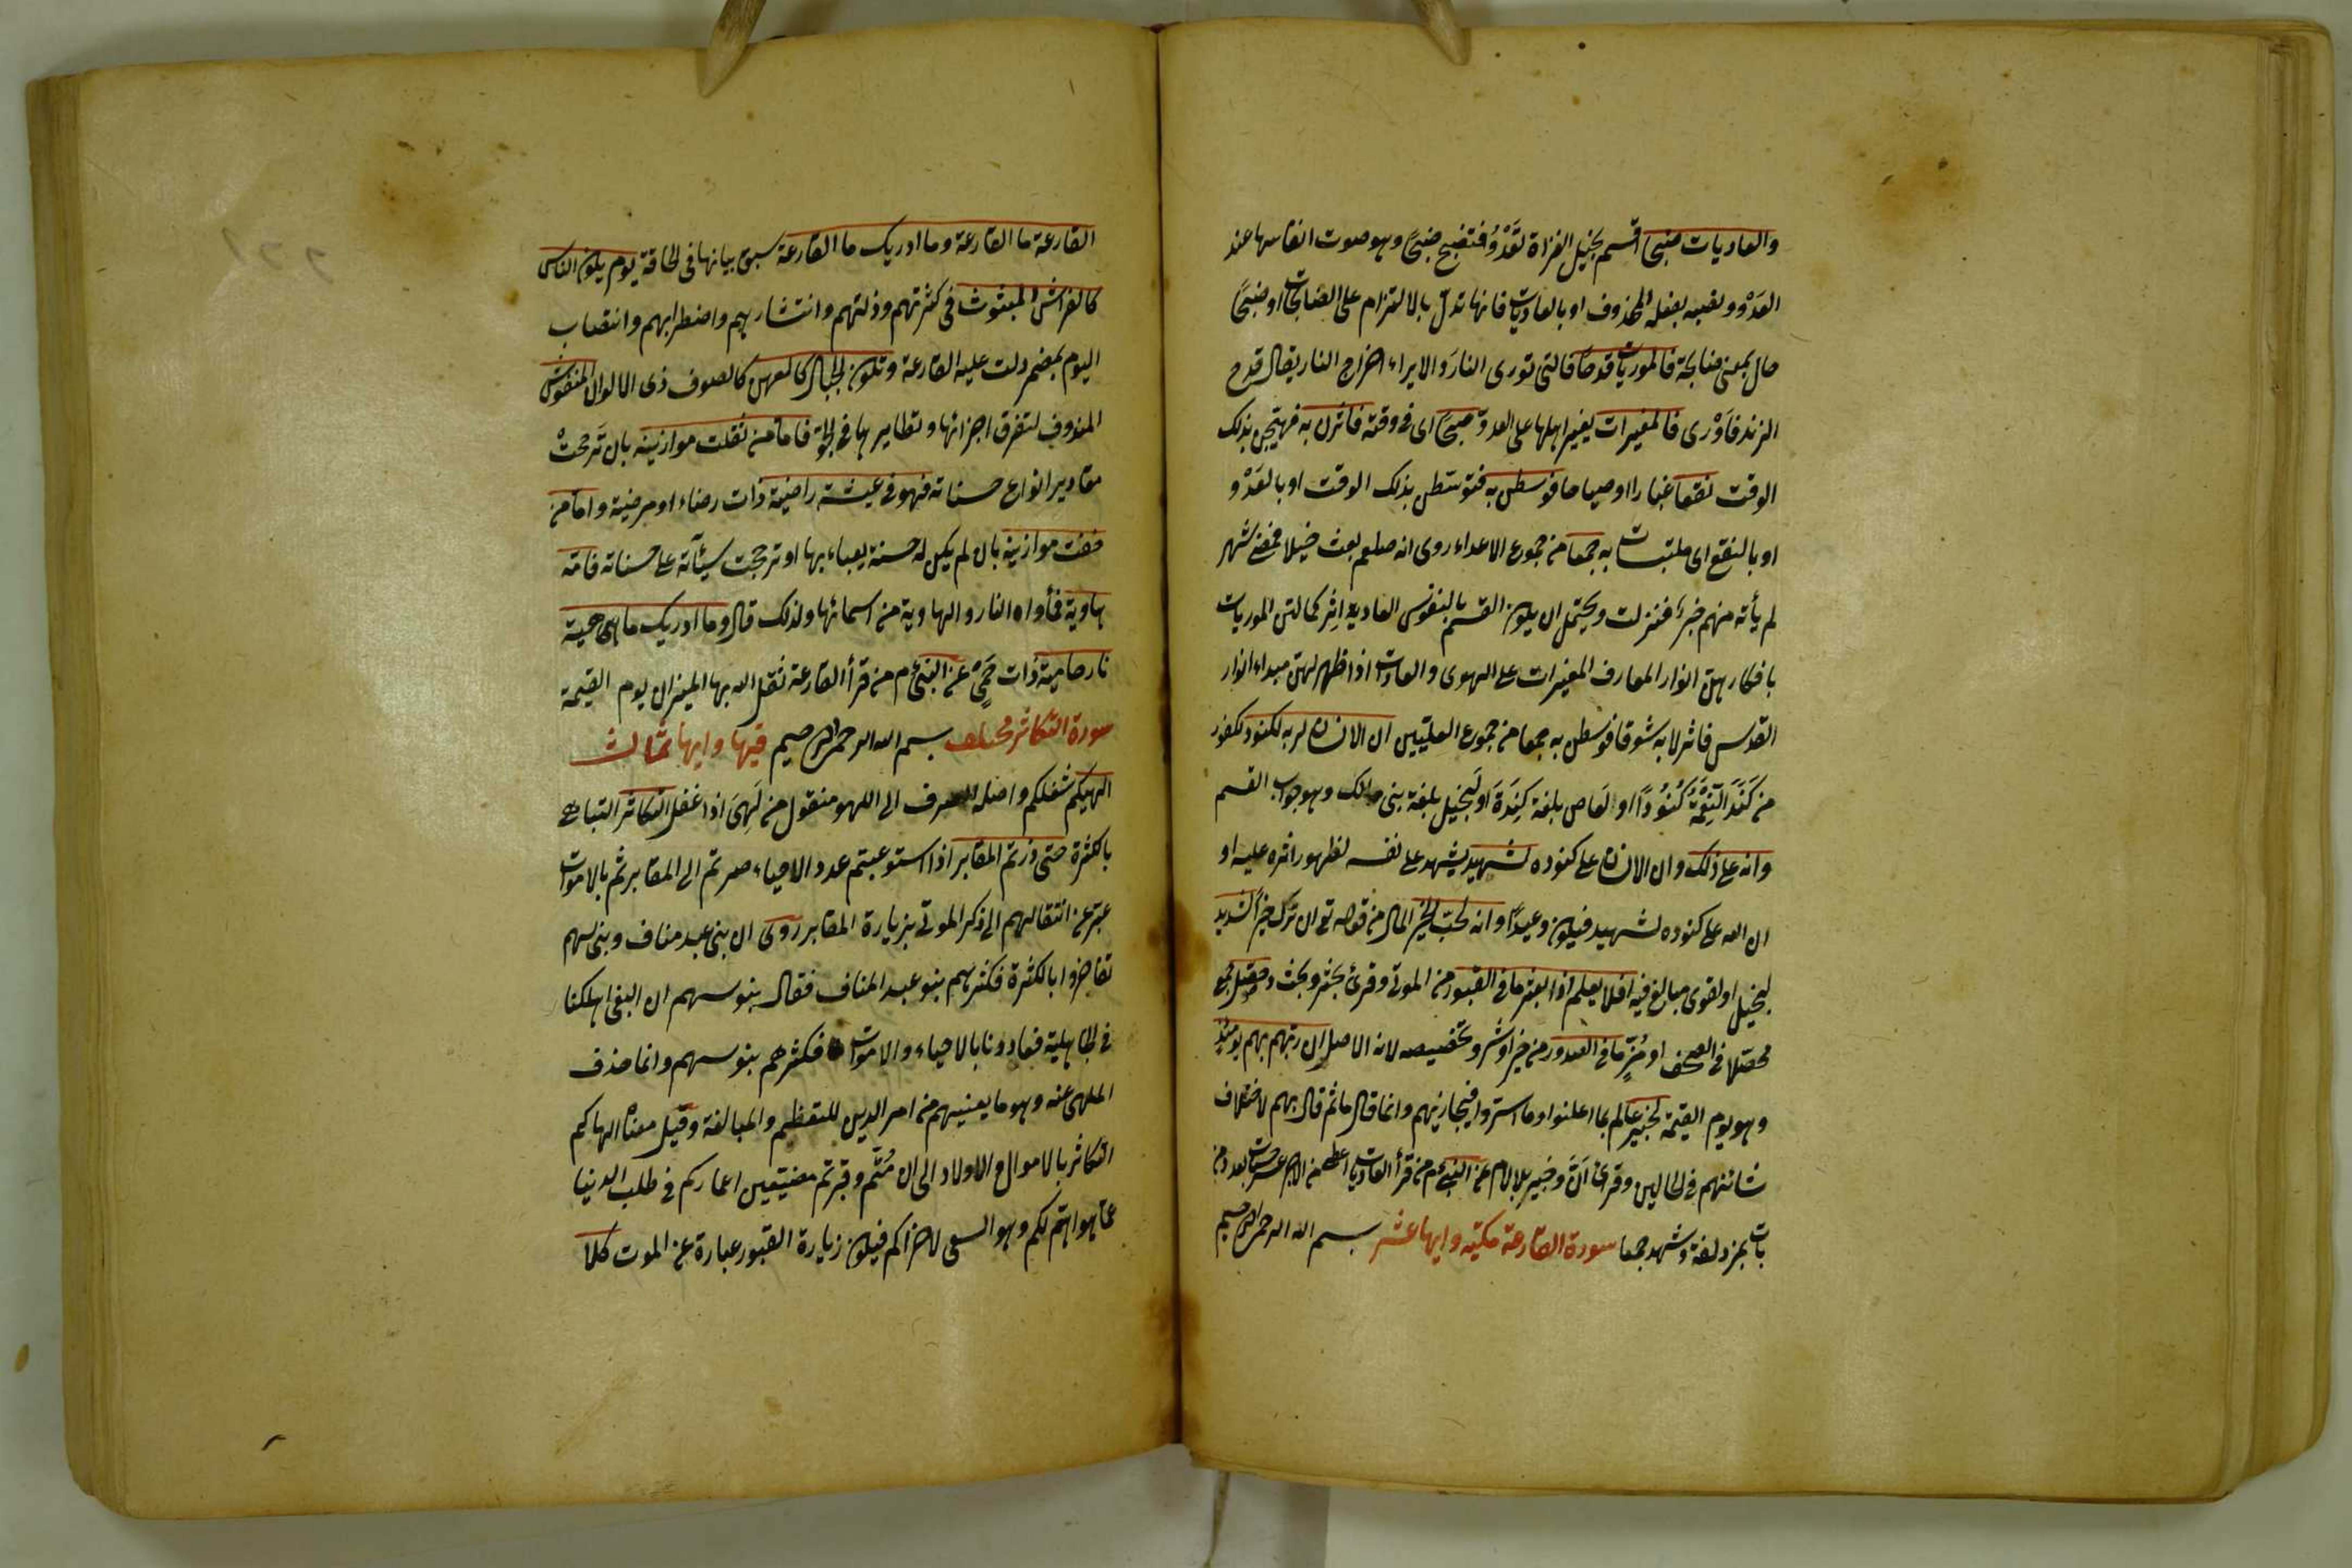 والعاديات ضبحا اقسم بخيل الغزاة تعدو فتضبح ضبحا وهو صوت انفاسها عند
العدو ونصبه بفعله المحذوف او بالعاديات فانها تدل بالالتزام على الضابحات او ضبحا
حال بمعنى ضابحة فالموريات قدحا فالتى تورى النار والايراء اخراج النار يقال قدح
الزند فاورى فالمغيرات يغير اهلها على العدو صبحا اى فى وقته فاثرن به فهيجن بذلك
الوقت نقعا غبارا او صياحا فوسطن به فتوسطن بذلك الوقت او بالعدو
او بالنقع اى ملتبسات به جمعا من جموع الاعداء روى انه صلعم بعث خيلا فمضى شهر
لم يأته منهم خبر فنزلت ويحتمل ان يكون القسم بالنفوس العادية اثر كمالتهن الموريات
بافكارهن انوار المعارف المغيرات على الهوى والعادات اذا ظهر لهن مبداء انوار
القدس فاثرن به شوقا فوسطن به جمعا من جموع العليين ان الانسان لربه لكنود لكفور
من كند النعمة كنودا او لعاص بلغة كندة او لبخيل بلغة بنى مالك وهو جواب القسم
وانه على ذلك وان الانسان على كنوده لشهيد يشهد على نفسه لظهور اثره عليه او
ان الله على كنوده لشهيد فيكون وعيدا وانه لحب الخير المال من قوله تع ان ترك خيرا لشديد
لبخيل او لقوى مبالغ فيه افلا يعلم اذا بعثر ما فى القبور من الموتى وقرئ بحثر وبحث وحصل جمع
محصلا فى الصحف او ميز ما فى الصدور من خير او شر وتخصيصه لانه الاصل ان ربهم بهم يومئذ
وهو يوم القيمة لخبير عالم بما اعلنوا وما اسروا فيجازيهم وانما قال ما ثم قال بهم لاختلاف
شانهم فى الحالين وقرئ ان وخبير بلا لام عن النبى م من قرأ العاديات اعطى من الاجر عشر حسنات بعدد من
بات بمزدلفة وشهد جمعا سورة القارعة مكية وايها عشر بسم الله الرحمن الرحيم
القارعة ما القارعة وما ادريك ما القارعة سبق بيانها فى الحاقة يوم يكون الناس
كالفراش المبثوث فى كثرتهم وذلتهم وانتشارهم واضطرابهم وانتصاب
اليوم بمضمر دلت عليه القارعة وتكون الجبال كالعهن كالصوف ذى الالوان المنفوش
المندوف لتفرق اجزائها وتطايرها فى الجو فاما من ثقلت موازينه بان ترجحت
مقادير انواع حسناته فهو فى عيشة راضية ذات رضاء او مرضية واما من
خفت موازينه بان لم يكن له حسنة يعباء بها او ترجحت سيئاته على حسناته فامه
هاوية فمأواه النار والهاوية من اسمائها ولذلك قال وما ادريك ما هى حمية
نار حامية ذات حمى عن النبى م من قرأ القارعة ثقل الله بها الميزان يوم القيمة
سورة التكاثر مختلف بسم الله الرحمن الرحيم فيها وايها ثمان
الهيكم شغلكم واصله الصرف الى اللهو منقول من لهى اذا غفل التكاثر التباهى
بالكثرة حتى زرتم المقابر اذا استوعبتم عدد الاحياء صرتم الى المقابر ثم بالاموات
عبر عن انتقالهم الى ذكر الموتى بزيارة المقابر روى ان بنى عبد مناف وبنى سهم
تفاخروا بالكثرة فكثرهم بنو عبد المناف فقال بنو سهم ان البغى اهلكنا
فى الجاهلية فعادونا بالاحياء والاموات فكثرهم بنو سهم وانما حذف
الملهى عنه وهو ما يعنيهم من امر الدين للتعظيم والمبالغة وقيل معناه الهاكم
التكاثر بالاموال والاولاد الى ان متم وقبرتم مضيعين اعماركم فى طلب الدنيا
عما هو اهم لكم وهو السعى لاخراكم فيكون زيارة القبور عبارة عن الموت كلا